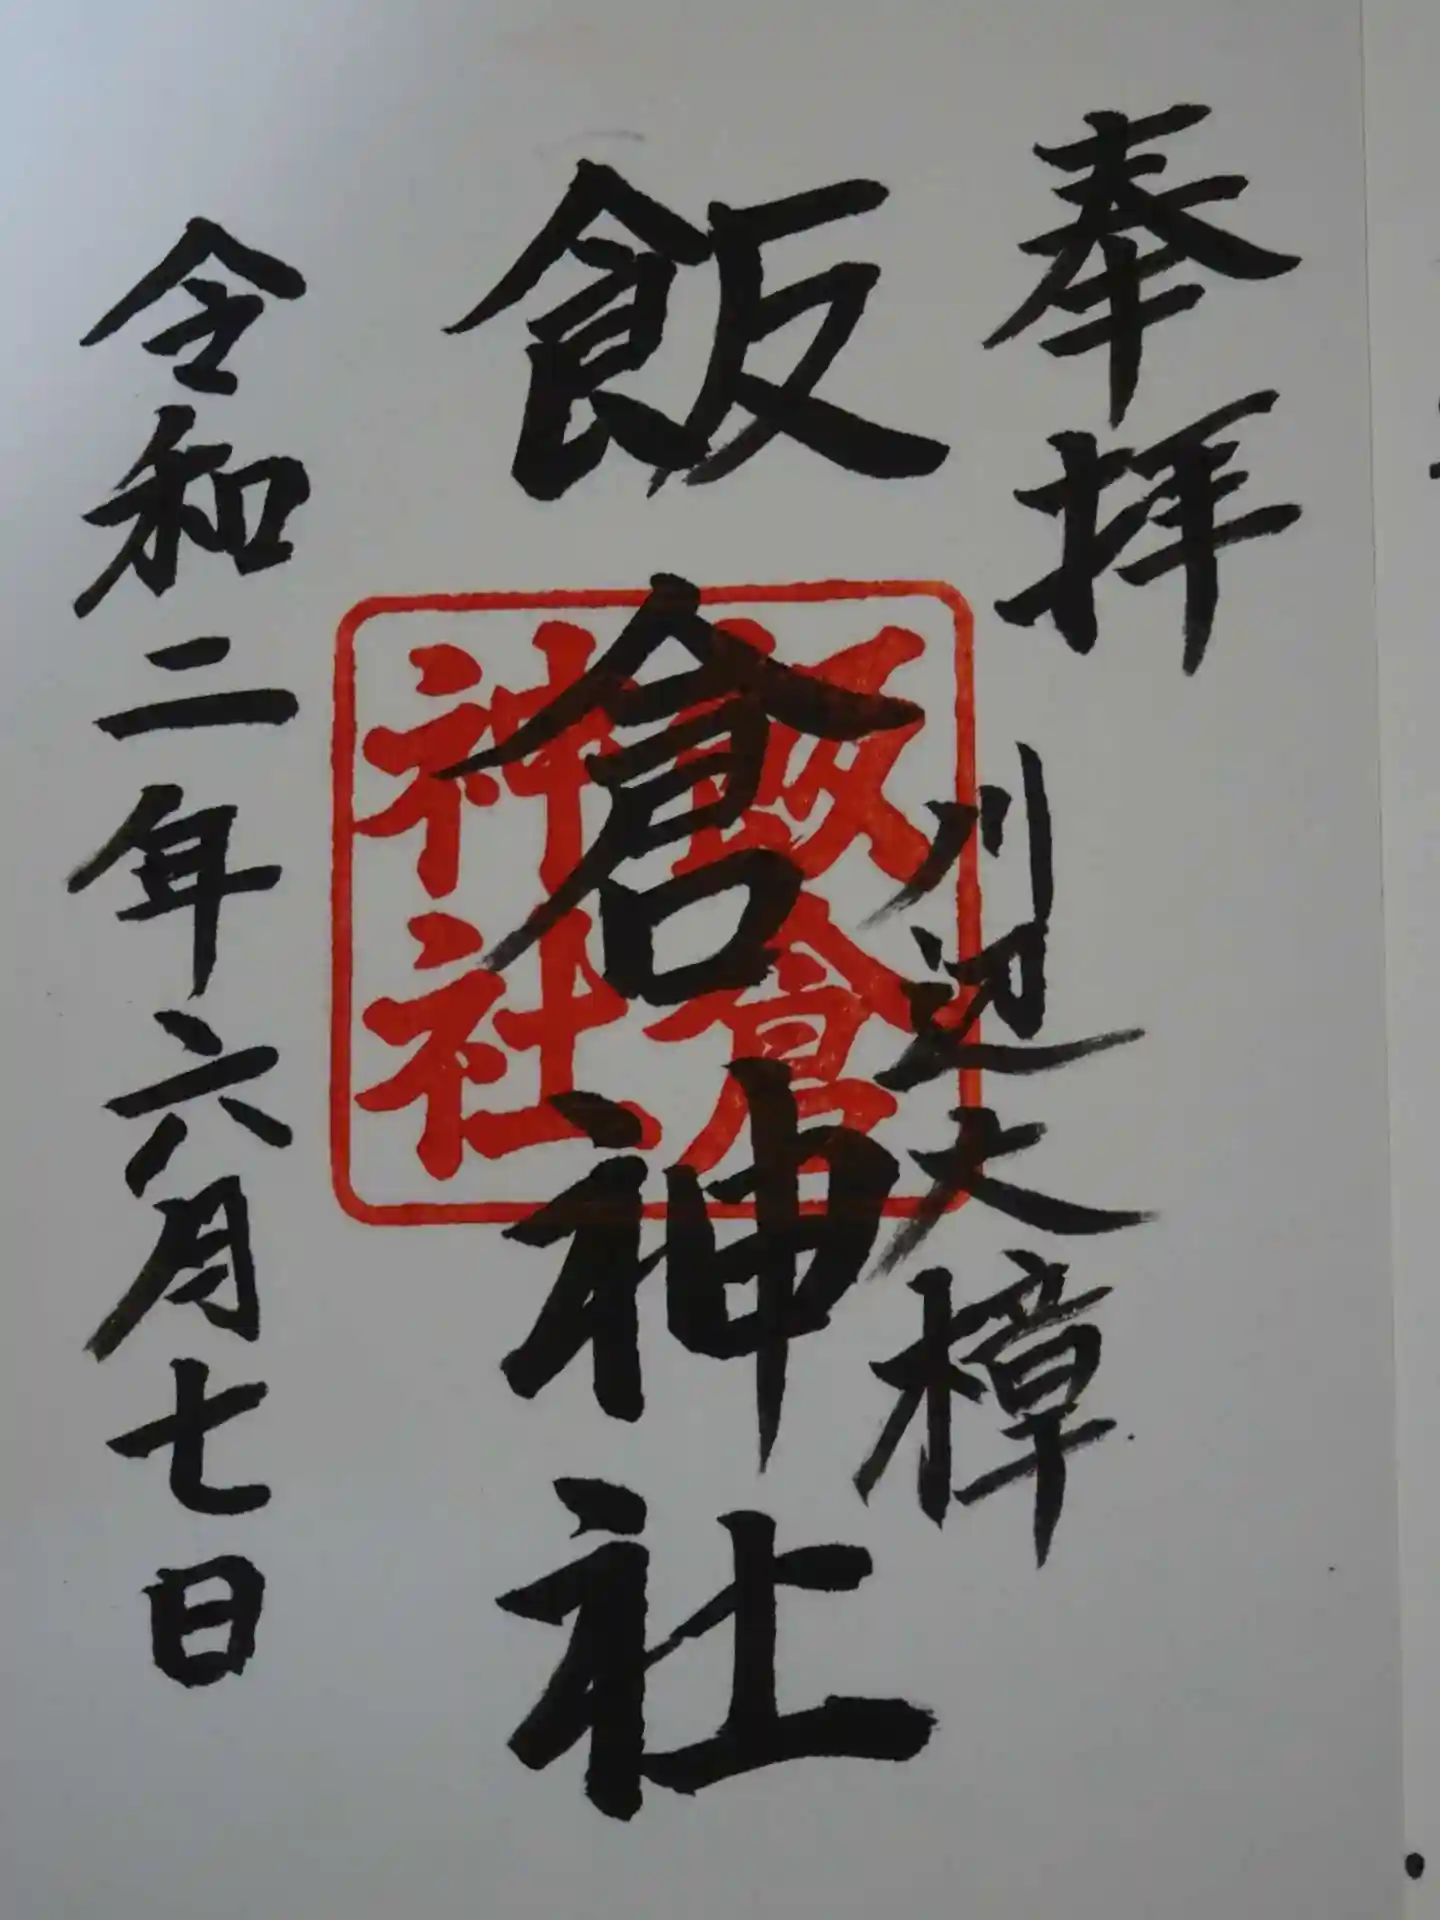 奉拝
川辺大樟
飯倉神社
飯倉
神社
令和二年六月七日